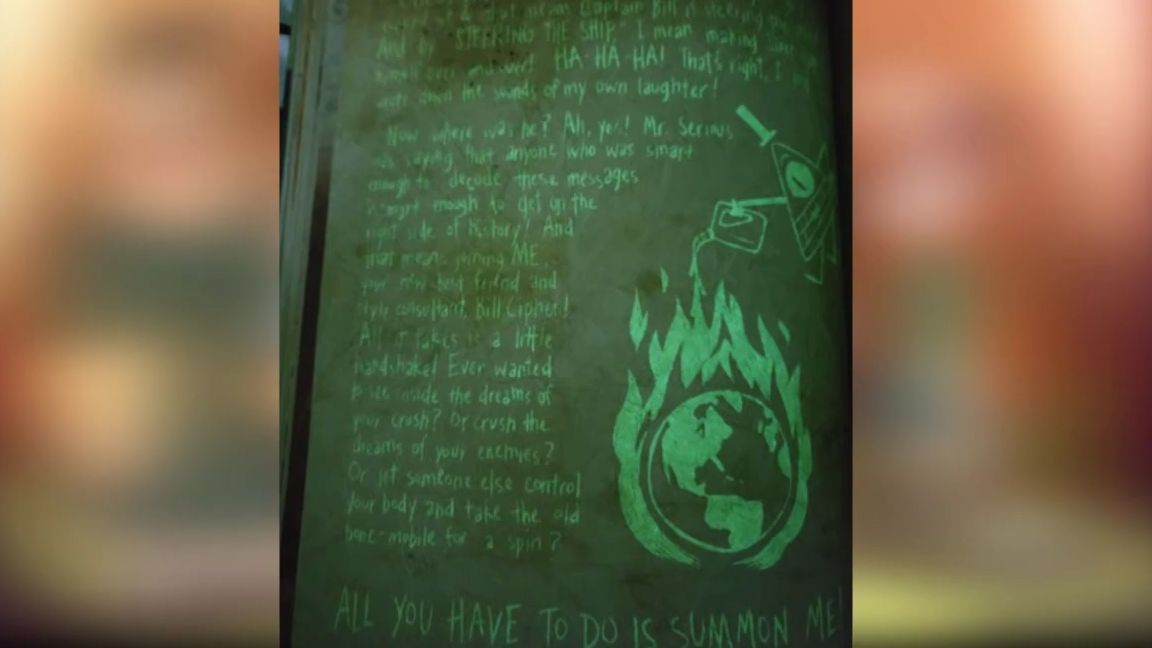 dot means Captain Bill is steering
And by "STEERING THE SHIP," I mean making
over and over! HA-HA-HA! That's right, I
write down the sounds of my own laughter!
Now where was he? Ah, yes! Mr. Serious
was saying that anyone who was smart
enough to decode these messages
is smart enough to get on the
right side of history! And
that means joining ME,
your new best friend and
style consultant, Bill Cipher!
All it takes is a little
handshake! Ever wanted
to see inside the dreams of
your crush? Or crush the
dreams of your enemies?
Or let someone else control
your body and take the old
bone-mobile for a spin?
ALL YOU HAVE TO DO IS SUMMON ME!